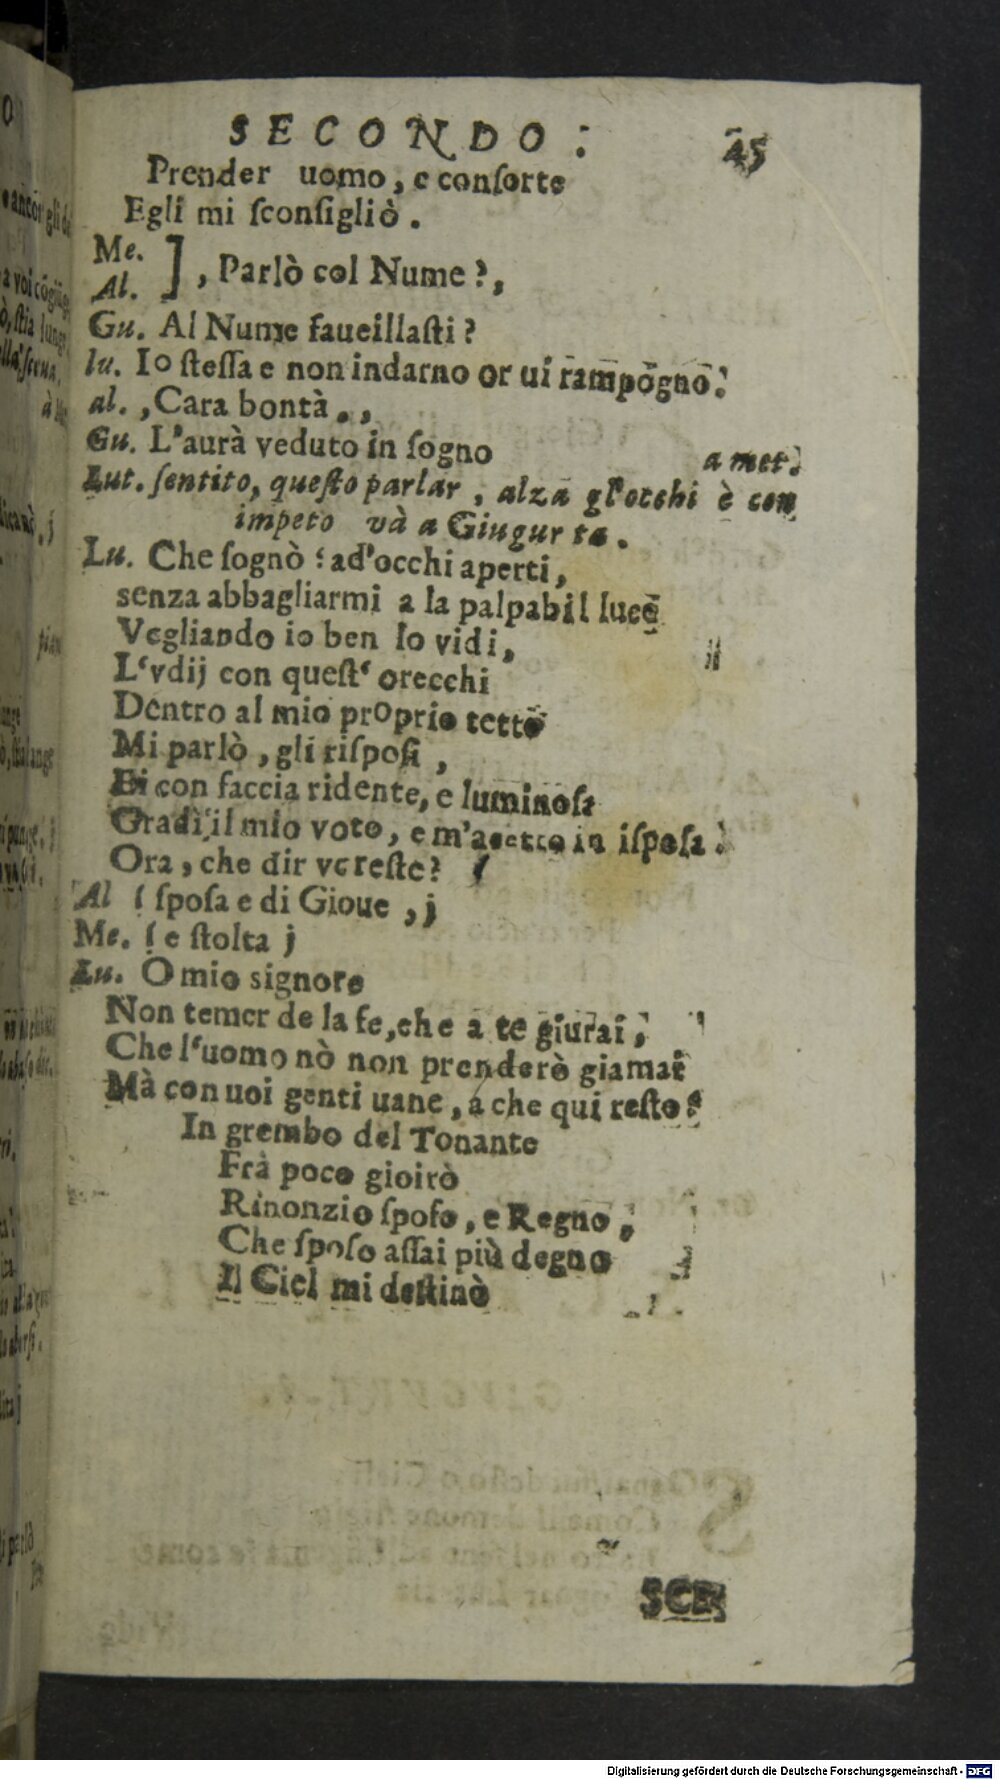 SECONDO: 45
Prender uomo, e conſorte
Egli mi ſconſigliò.
Me.
Al. ], Parlò col Nume?,
Gu. Al Nume faueillaſti?
lu. Io ſteſſa e non indarno or ui rampōgno:
al. , Cara bontà . ,
Gu. L'aurà veduto in ſogno
a met.
Lut. ſentito, queſto parlar, alza gl'occhi è con
impeto và a Giugurta.
Lu. Che ſognò? ad'occhi aperti,
senza abbagliarmi a la palpabil luce
Vegliando io ben lo vidi,
L'vdij con queſt' orecchi
Dentro al mio proprio tetto
Mi parlò, gli riſpoſi,
Ei con faccia ridente, e luminoſa
Gradì il mio voto, e m'acetto in iſpoſa:
Ora, che dir vereſte?
Al ( spoſa e di Gioue, j
Me. ( e ſtolta j
Lu. O mio signore
Non temer de la fe, che a te giurai,
Che l'uomo nò non prenderò giamai
Mà con uoi genti uane, a che qui reſto?
In grembo del Tonante
Frà poco gioirò
Rinonzio ſpoſo, e Regno,
Che ſpoſo aſſai più degno
Il Ciel mi deſtinò
SCE
Digitalisierung gefördert durch die Deutsche Forschungsgemeinschaft - DFG